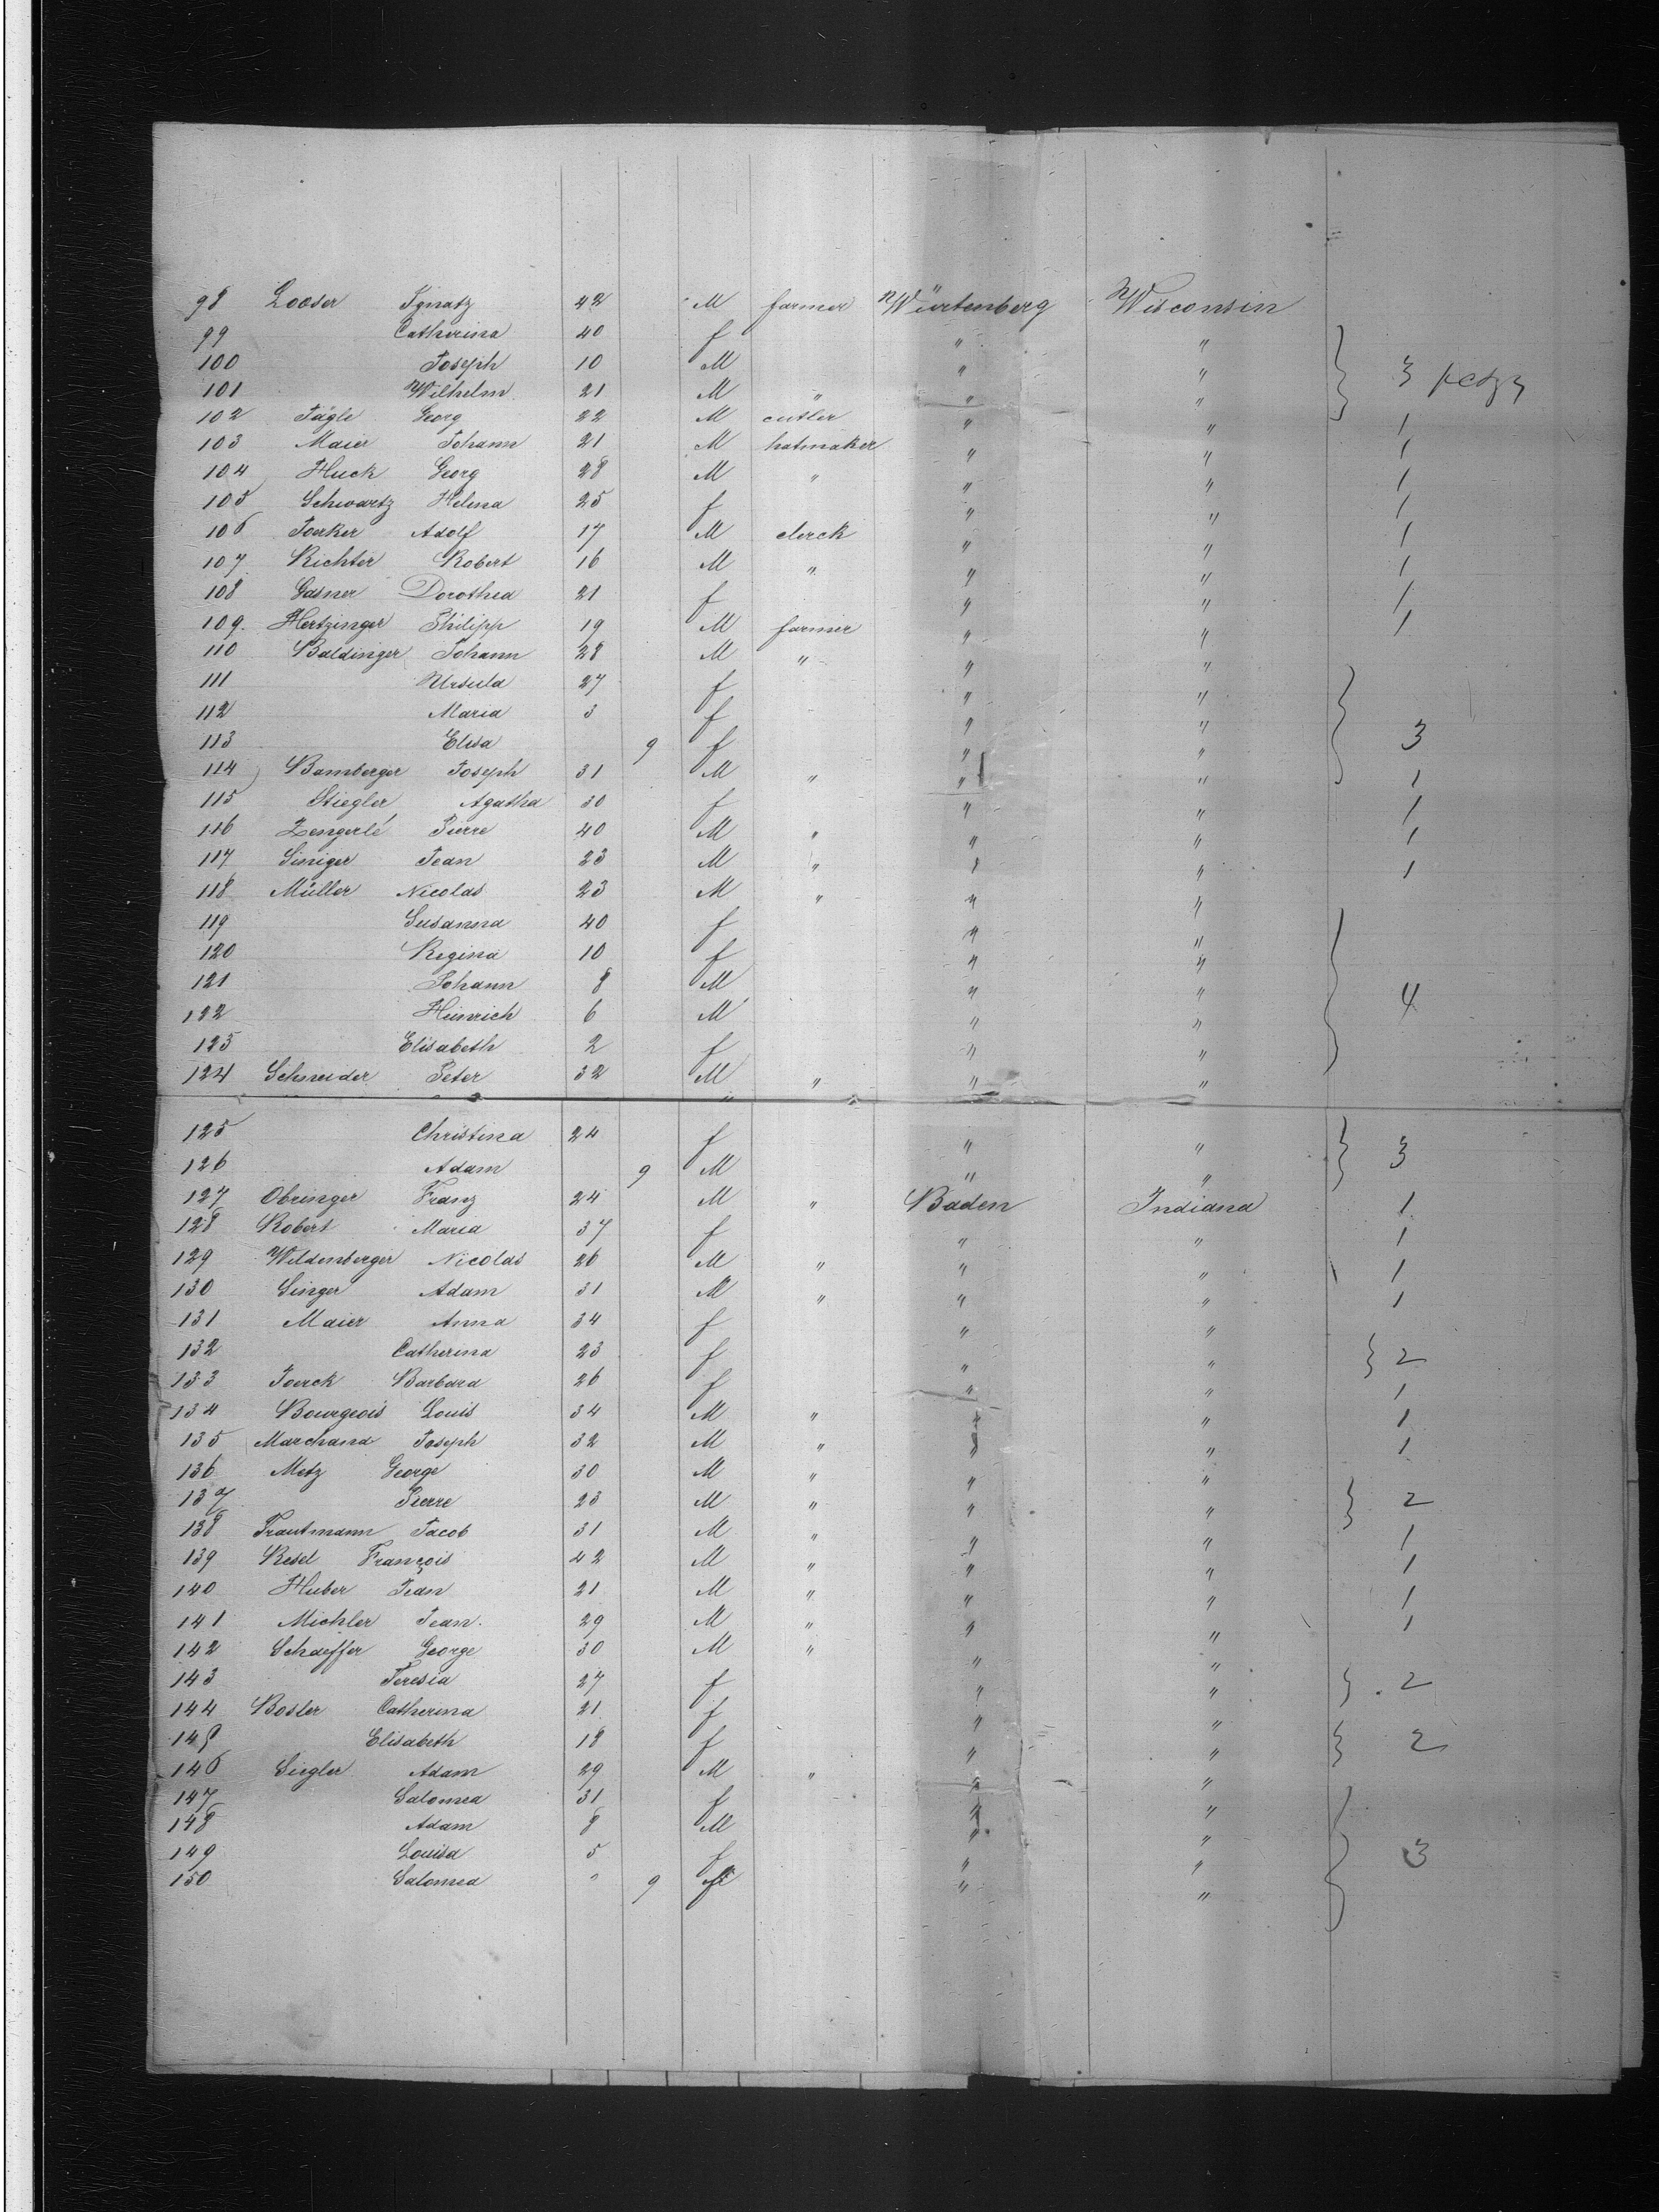 98 Looser Ignatz 42 M farmer Würtenberg Wisconsin
99 Catherina 40 f " "
100 Joseph 10 M " " 3
101 Wilhelm 21 M " " "
102 Jägle Georg 22 M cutler " " 1
103 Maier Johann 21 M hatmaker " " 1
104 Huck Georg 28 M " " " 1
105 Schwartz Helena 25 f " " 1
106 Joerker Adolf 17 M clerck " " 1
107 Richter Robert 16 M " " " 1
108 Gasner Dorothea 21 f " " 1
109. Hertzinger Philipp 19 M farmer " " 1
110 Baldinger Johann 28 M " " "
111 Ursula 27 f " "
112 Maria 3 f " "
113 Elisa 9 f " " 3
114 Bamberger Joseph 31 M " " " 1
115 Stiegler Agatha 30 f " " 1
116 Zengerlé Pierre 40 M " " " 1
117 Siniger Jean 23 M " " " 1
118 Müller Nicolas 23 M " " "
119 Susanna 40 f " "
120 Regina 10 f " "
121 Johann 8 M " " 4
122 Heinrich 6 M " "
123 Elisabeth 2 f " "
124 Schneider Peter 32 M " " "
125 Christina 24 f " "
126 Adam 9 M " " 3
127 Obringer Franz 24 M " Baden Indiana 1
128 Robert Maria 37 f " " 1
129 Wildenberger Nicolas 26 M " " " 1
130 Singer Adam 31 M " " " 1
131 Maier Anna 34 f " "
132 Catherina 23 f " " 2
133 Joerck Barbara 26 f " " 1
134 Bourgeois Louis 34 M " " " 1
135 Marchand Joseph 32 M " " " 1
136 Metz George 30 M " " "
137 Pierre 23 M " " " 2
138 Trautmann Jacob 31 M " " " 1
139 Resel François 42 M " " " 1
140 Huber Jean 21 M " " " 1
141 Michler Jean. 29 M " " " 1
142 Schaeffer George 30 M " " "
143 Teresia 27 f " " 2
144 Bosler Catherina 21 f " "
145 Elisabeth 18 f " " 2
146 Siegler Adam 29 M " " "
147 Salomea 31 f " "
148 Adam 8 M " "
149 Louisa 5 f " " 3
150 Salomea " 9 f " "